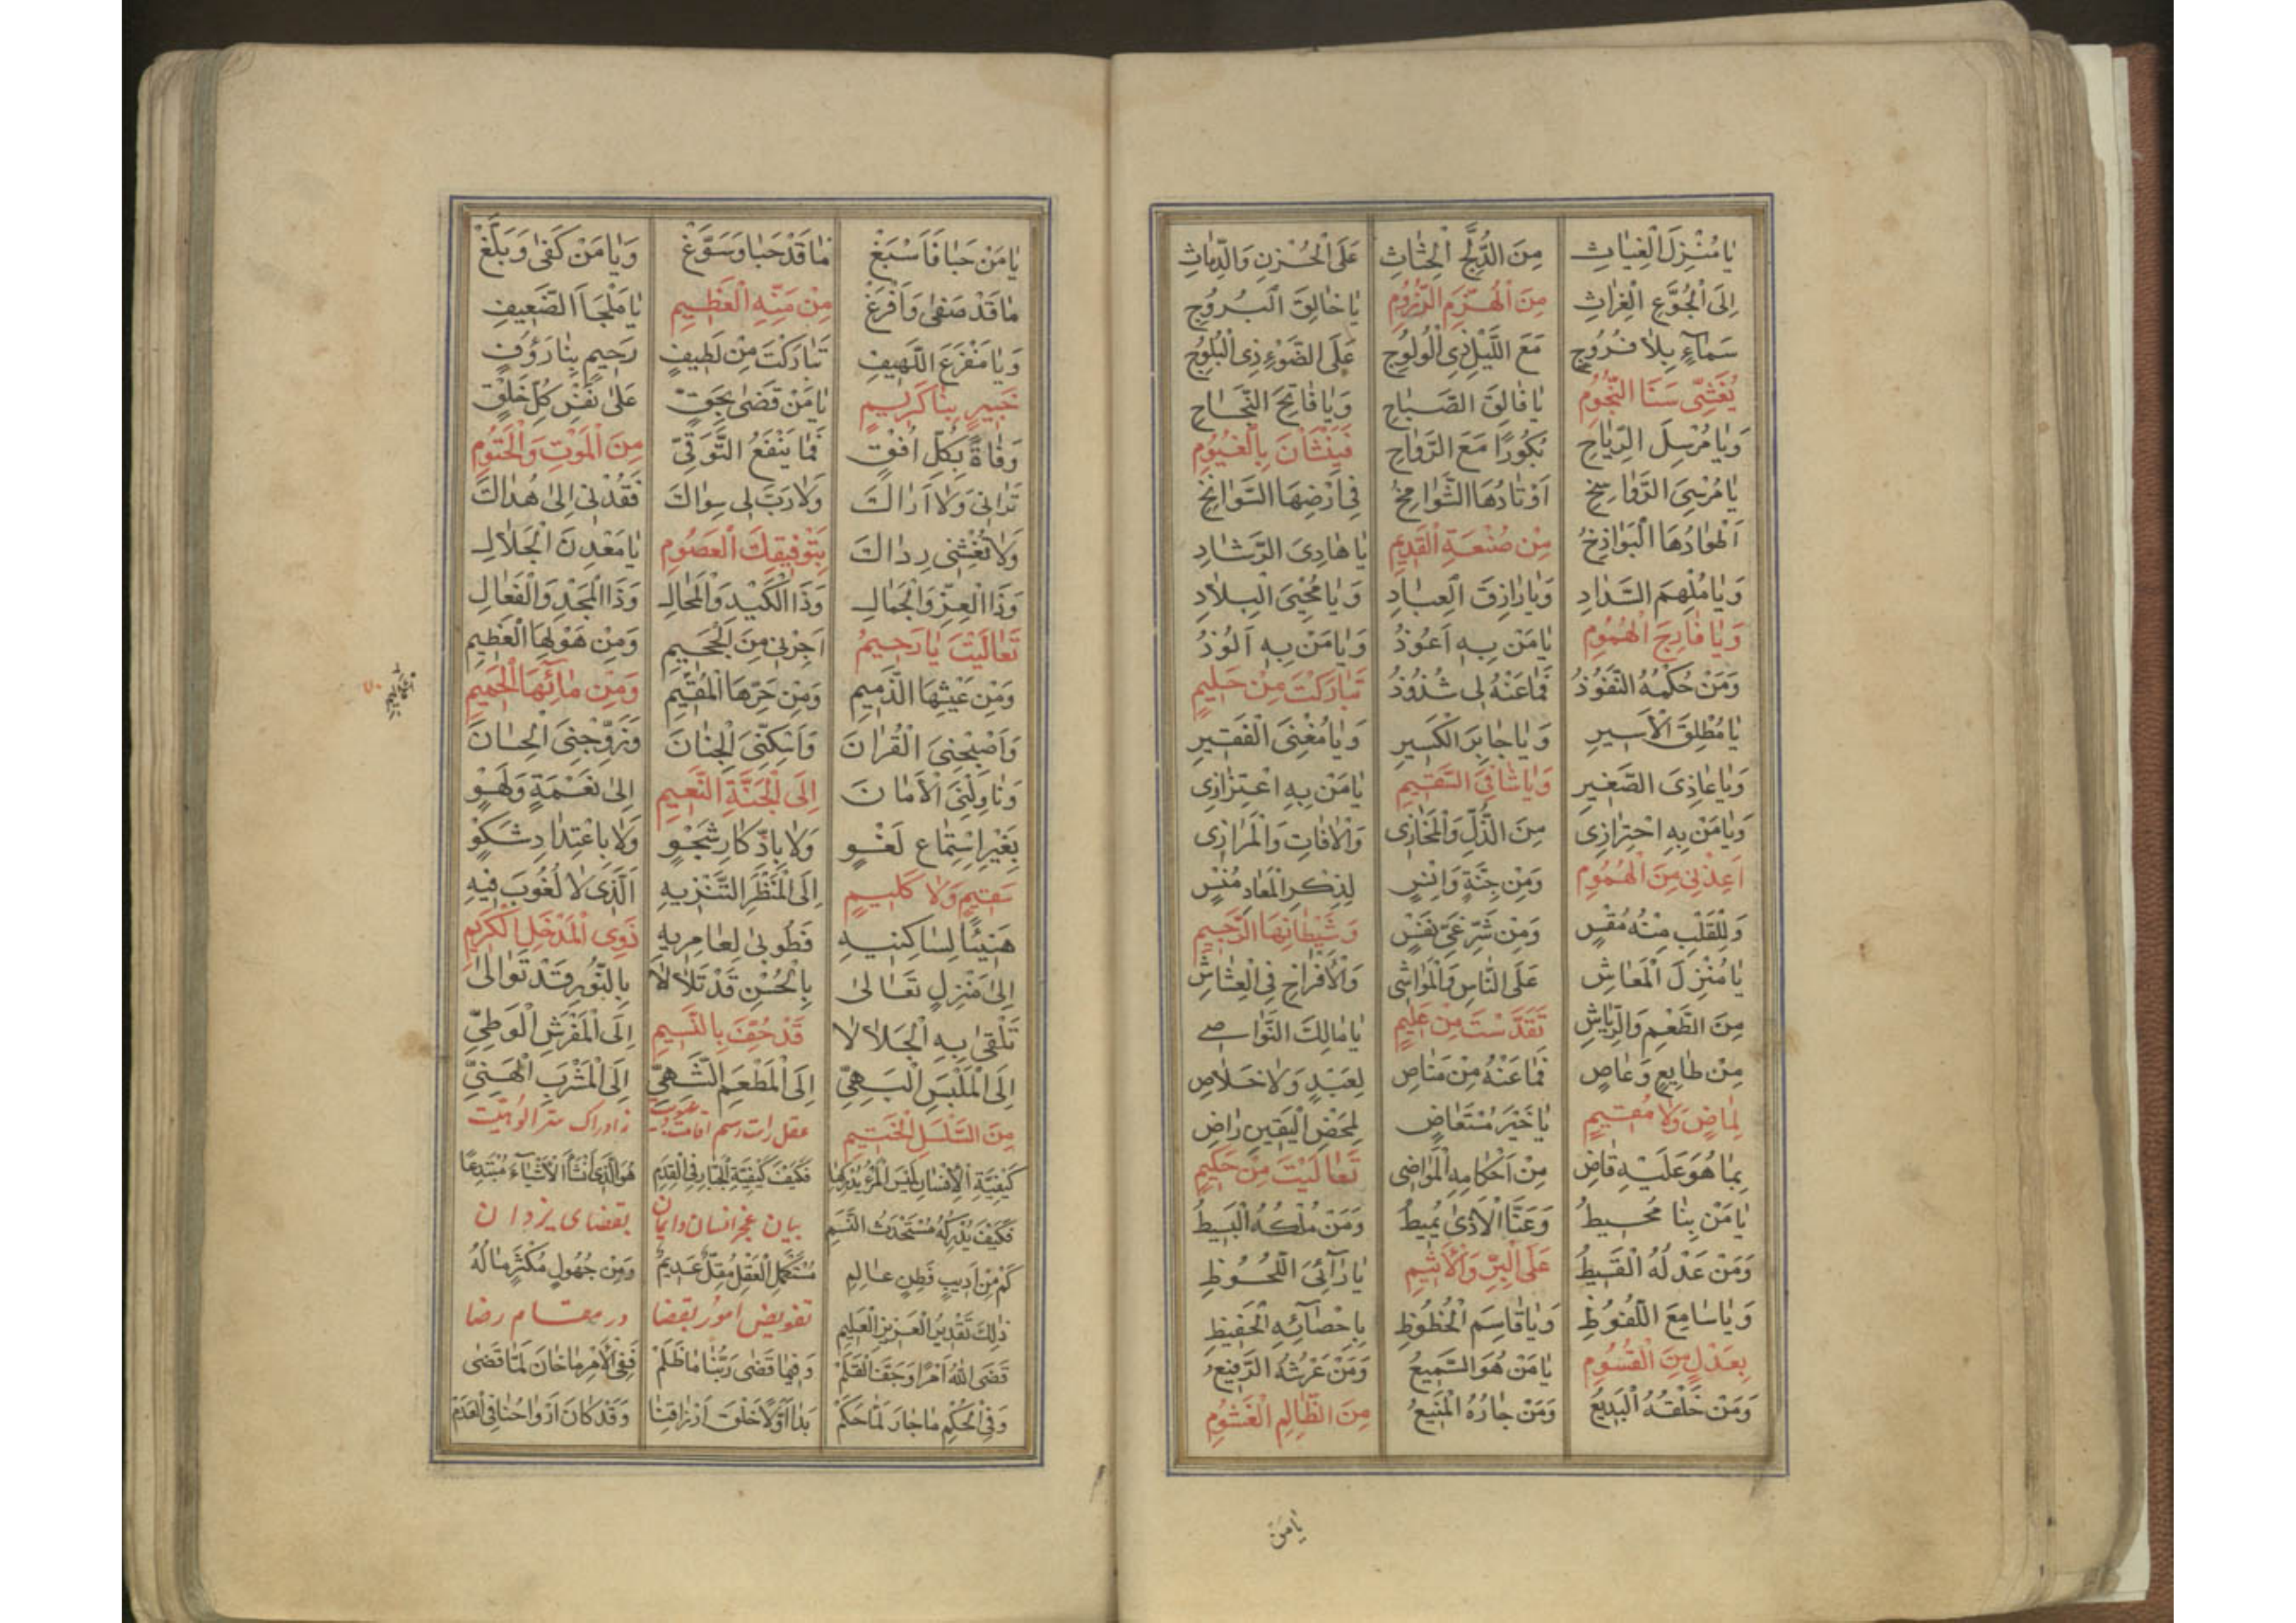 يا مُنْزِلَ الْغِياثِ مِنَ الدُّلَّجِ الْحِثاثِ عَلَى الْحُزْنِ وَالدِّماثِ
اِلَى الْجُوَّعِ الْغِراثِ مِنَ الْهُزَّمِ الرَّزُومِ يا خالِقَ الْبُرُوجِ
سَمآءٍ بِلا فُرُوجٍ مَعَ اللَّيْلِ ذِي الْوُلُوجِ عَلَى الضَّوْءِ ذِي الْبُلُوجِ
يُغَشِّى سَنَا النُّجُومِ يا فالِقَ الصَّباحِ وَيا فاتِحَ النَّجاحِ
وَيا مُرْسِلَ الرِّياحِ بُكُورًا مَعَ الرَّواحِ فَيَنْشَأْنَ بِالْغُيُومِ
يا مُرْسِيَ الرَّواسِخِ اَوْتادُهَا الشَّوامِخُ فِي اَرْضِهَا السَّوانِخِ
اَطْوادُهَا الْبَواذِخُ مِنْ صُنْعَةِ الْقَدِيمِ يا هادِيَ الرَّشادِ
وَيا مُلْهِمَ السَّدادِ وَيا رازِقَ الْعِبادِ وَيا مُحْيِيَ الْبِلادِ
وَيا فارِجَ الْهُمُومِ يا مَنْ بِهِ اَعُوذُ وَيا مَنْ بِهِ اَلُوذُ
وَمَنْ حُكْمُهُ النُّفُوذُ فَما عَنْهُ لِي شُذُوذُ تَبارَكْتَ مِنْ حَلِيمٍ
يا مُطْلِقَ الْاَسِيرِ وَيا جابِرَ الْكَسِيرِ وَيا مُغْنِيَ الْفَقِيرِ
وَيا غاذِيَ الصَّغِيرِ وَيا شافِيَ السَّقِيمِ يا مَنْ بِهِ اعْتِزازِى
وَيا مَنْ بِهِ احْتِرازِى مِنَ الذُّلِّ وَالْمَخازِى وَالْافاتِ وَالْمَرازِى
اَعِذْنِي مِنَ الْهُمُومِ وَمِنْ جِنَّةٍ وَاِنْسٍ لِذِكْرِ الْمَعادِ مُنْسٍ
وَلِلْقَلْبِ مِنْهُ مُقْسٍ وَمِنْ شَرِّ غَيِّ نَفْسٍ وَشَيْطانِهَا الرَّجِيمِ
يا مُنْزِلَ الْمَعاشِ عَلَى النَّاسِ وَالْمَواشِي وَالْاَفْراخِ فِي الْعِشاشِ
مِنَ الطَّعْمِ وَالرِّياشِ تَقَدَّسْتَ مِنْ عَلِيمٍ يا مالِكَ النَّواصِي
مِنْ طايِعٍ وَعاصٍ فَما عَنْهُ مِنْ مَناصٍ لِعَبْدٍ وَلا خَلاصٍ
لِماضٍ وَلا مُقِيمٍ يا خَيْرَ مُسْتَعاضٍ لِمَحْضِ الْيَقِينِ راضٍ
بِما هُوَ عَلَيْهِ قاضٍ مِنْ اَحْكامِهِ الْمَواضِي تَعالَيْتَ مِنْ حَكِيمٍ
يا مَنْ بِنا مُحِيطُ وَعَنَّا الْاَذى يُمِيطُ وَمَنْ مُلْكُهُ الْبَسِيطُ
وَمَنْ عَدْلُهُ الْقَسِيطُ عَلَى الْبِرِّ وَالْاَثِيمِ يا رَآئِيَ اللُّحُوظِ
وَيا سامِعَ اللُّفُوظِ وَيا قاسِمَ الْحُظُوظِ بِاِحْصآئِهِ الْحَفِيظِ
بِعَدْلٍ مِنَ الْقُسُومِ يا مَنْ هُوَ السَّمِيعُ وَمَنْ عَرْشُهُ الرَّفِيعُ
وَمَنْ خَلْقُهُ الْبَدِيعُ وَمَنْ جارُهُ الْمَنِيعُ مِنَ الظَّالِمِ الْغَشُومِ
يا مَنْ
يا مَنْ حَبا فَاَسْبَغْ ما قَدْ حَبا وَسَوَّغْ وَيا مَنْ كَفى وَبَلَّغْ
ما قَدْ صَفى وَاَفْرَغْ مِنْ مَنِّهِ الْعَظِيمِ يا مَلْجَاَ الضَّعِيفِ
وَيا مَفْزَعَ اللَّهِيفِ تَبارَكْتَ مِنْ لَطِيفٍ رَحِيمٍ بِنا رَؤُفٍ
خَبِيرٍ بِنا كَرِيمٍ يا مَنْ قَضى بِحَقٍّ عَلى نَفْسِ كُلِّ خَلْقٍ
وَفاةً بِكُلِّ اُفْقٍ فَما يَنْفَعُ التَّوَقِّي مِنَ الْمَوْتِ وَالْحُتُومِ
تَرانِي وَلا اَراكَ وَلا رَبَّ لِي سِواكَ فَقُدْنِي اِلى هُداكَ
وَلا تُغْشِنِي رِداكَ بِتَوْفِيقِكَ الْعَصُومِ يا مَعْدِنَ الْجَلالِ
وَذَا الْعِزِّ وَالْجَمالِ وَذَا الْكَيْدِ وَالْمَحالِ وَذَا الْمَجْدِ وَالْفَعالِ
تَعالَيْتَ يا رَحِيمُ اَجِرْنِي مِنَ الْجَحِيمِ وَمِنْ هَوْلِهَا الْعَظِيمِ
وَمِنْ عَيْشِهَا الذَّمِيمِ وَمِنْ حَرِّهَا الْمُقِيمِ وَمِنْ مآئِهَا الْحَمِيمِ
وَاَصْحِبْنِيَ الْقُرانَ وَاَسْكِنِّيَ الْجِنانَ وَزَوِّجْنِيَ الْحِسانَ
وَناوِلْنِيَ الْاَمانَ اِلَى الْجَنَّةِ النَّعِيمِ اِلى نِعْمَةٍ وَلَهْوٍ
بِغَيْرِ اسْتِماعِ لَغْوٍ وَلا بِادِّكارِ شَجْوٍ وَلا بِاعْتِدادِ شَكْوٍ
سَقِيمٍ وَلا كَلِيمٍ اِلَى الْمَنْظَرِ التَّنْزِيهِ اَلَّذِي لا لُغُوبَ فِيهِ
هَنِيئًا لِساكِنِيهِ فَطُوبى لِعامِرِيهِ ذَوِي الْمَدْخَلِ الْكَرِيمِ
اِلى مَنْزِلٍ تَعالى بِالْحُسْنِ قَدْ تَلَالَا بِالنُّورِ قَدْ تَوالى
تَلْقى بِهِ الْجَلالا قَدْ حُفَّ بِالنَّسِيمِ اِلَى الْمَفْرَشِ الْوَطِيِّ
اِلَى الْمَلْبَسِ الْبَهِيِّ اِلَى الْمَطْعَمِ الشَّهِيِّ اِلَى الْمَشْرَبِ الْهَنِيِّ
مِنَ السَّلْسَلِ الْخَتِيمِ عقل را زادراک سر الوهیت
كَيْفِيَّةُ الْاِنْسانِ لَيْسَ الْمَرْءُ يُدْرِكُها فَكَيْفَ كَيْفِيَّةُ الْجَبَّارِ فِي الْقِدَمِ هُوَ الَّذِي اَنْشَأَ الْاَشْيآءَ مُبْتَدِعًا
فَكَيْفَ يُدْرِكُهُ مُسْتَحْدَثُ النَّسَمِ بیان عجز انسان بقضای یزدان
كَمْ مِنْ اَدِيبٍ فَطِنٍ عالِمٍ مُسْتَكْمِلِ الْعَقْلِ مُقِلٌّ عَدِيمٌ وَمِنْ جَهُولٍ مُكْثِرٍ مالُهُ
ذلِكَ تَقْدِيرُ الْعَزِيزِ الْعَلِيمِ تفویض امور بقضا در مقام رضا
قَضَى اللّٰهُ اَمْرًا وَجَفَّ الْقَلَمْ وَفِيما قَضى رَبُّنا ما ظَلَمْ فَفِي الْاَمْرِ ما خانَ لَمَّا قَضى
وَفِي الْحُكْمِ ما جارَ لَمَّا حَكَمْ بَدا اَوَّلًا خَلْقَ اَرْزاقِنا وَقَدْ كانَ اَرْواحُنا فِي الْعَدَمْ